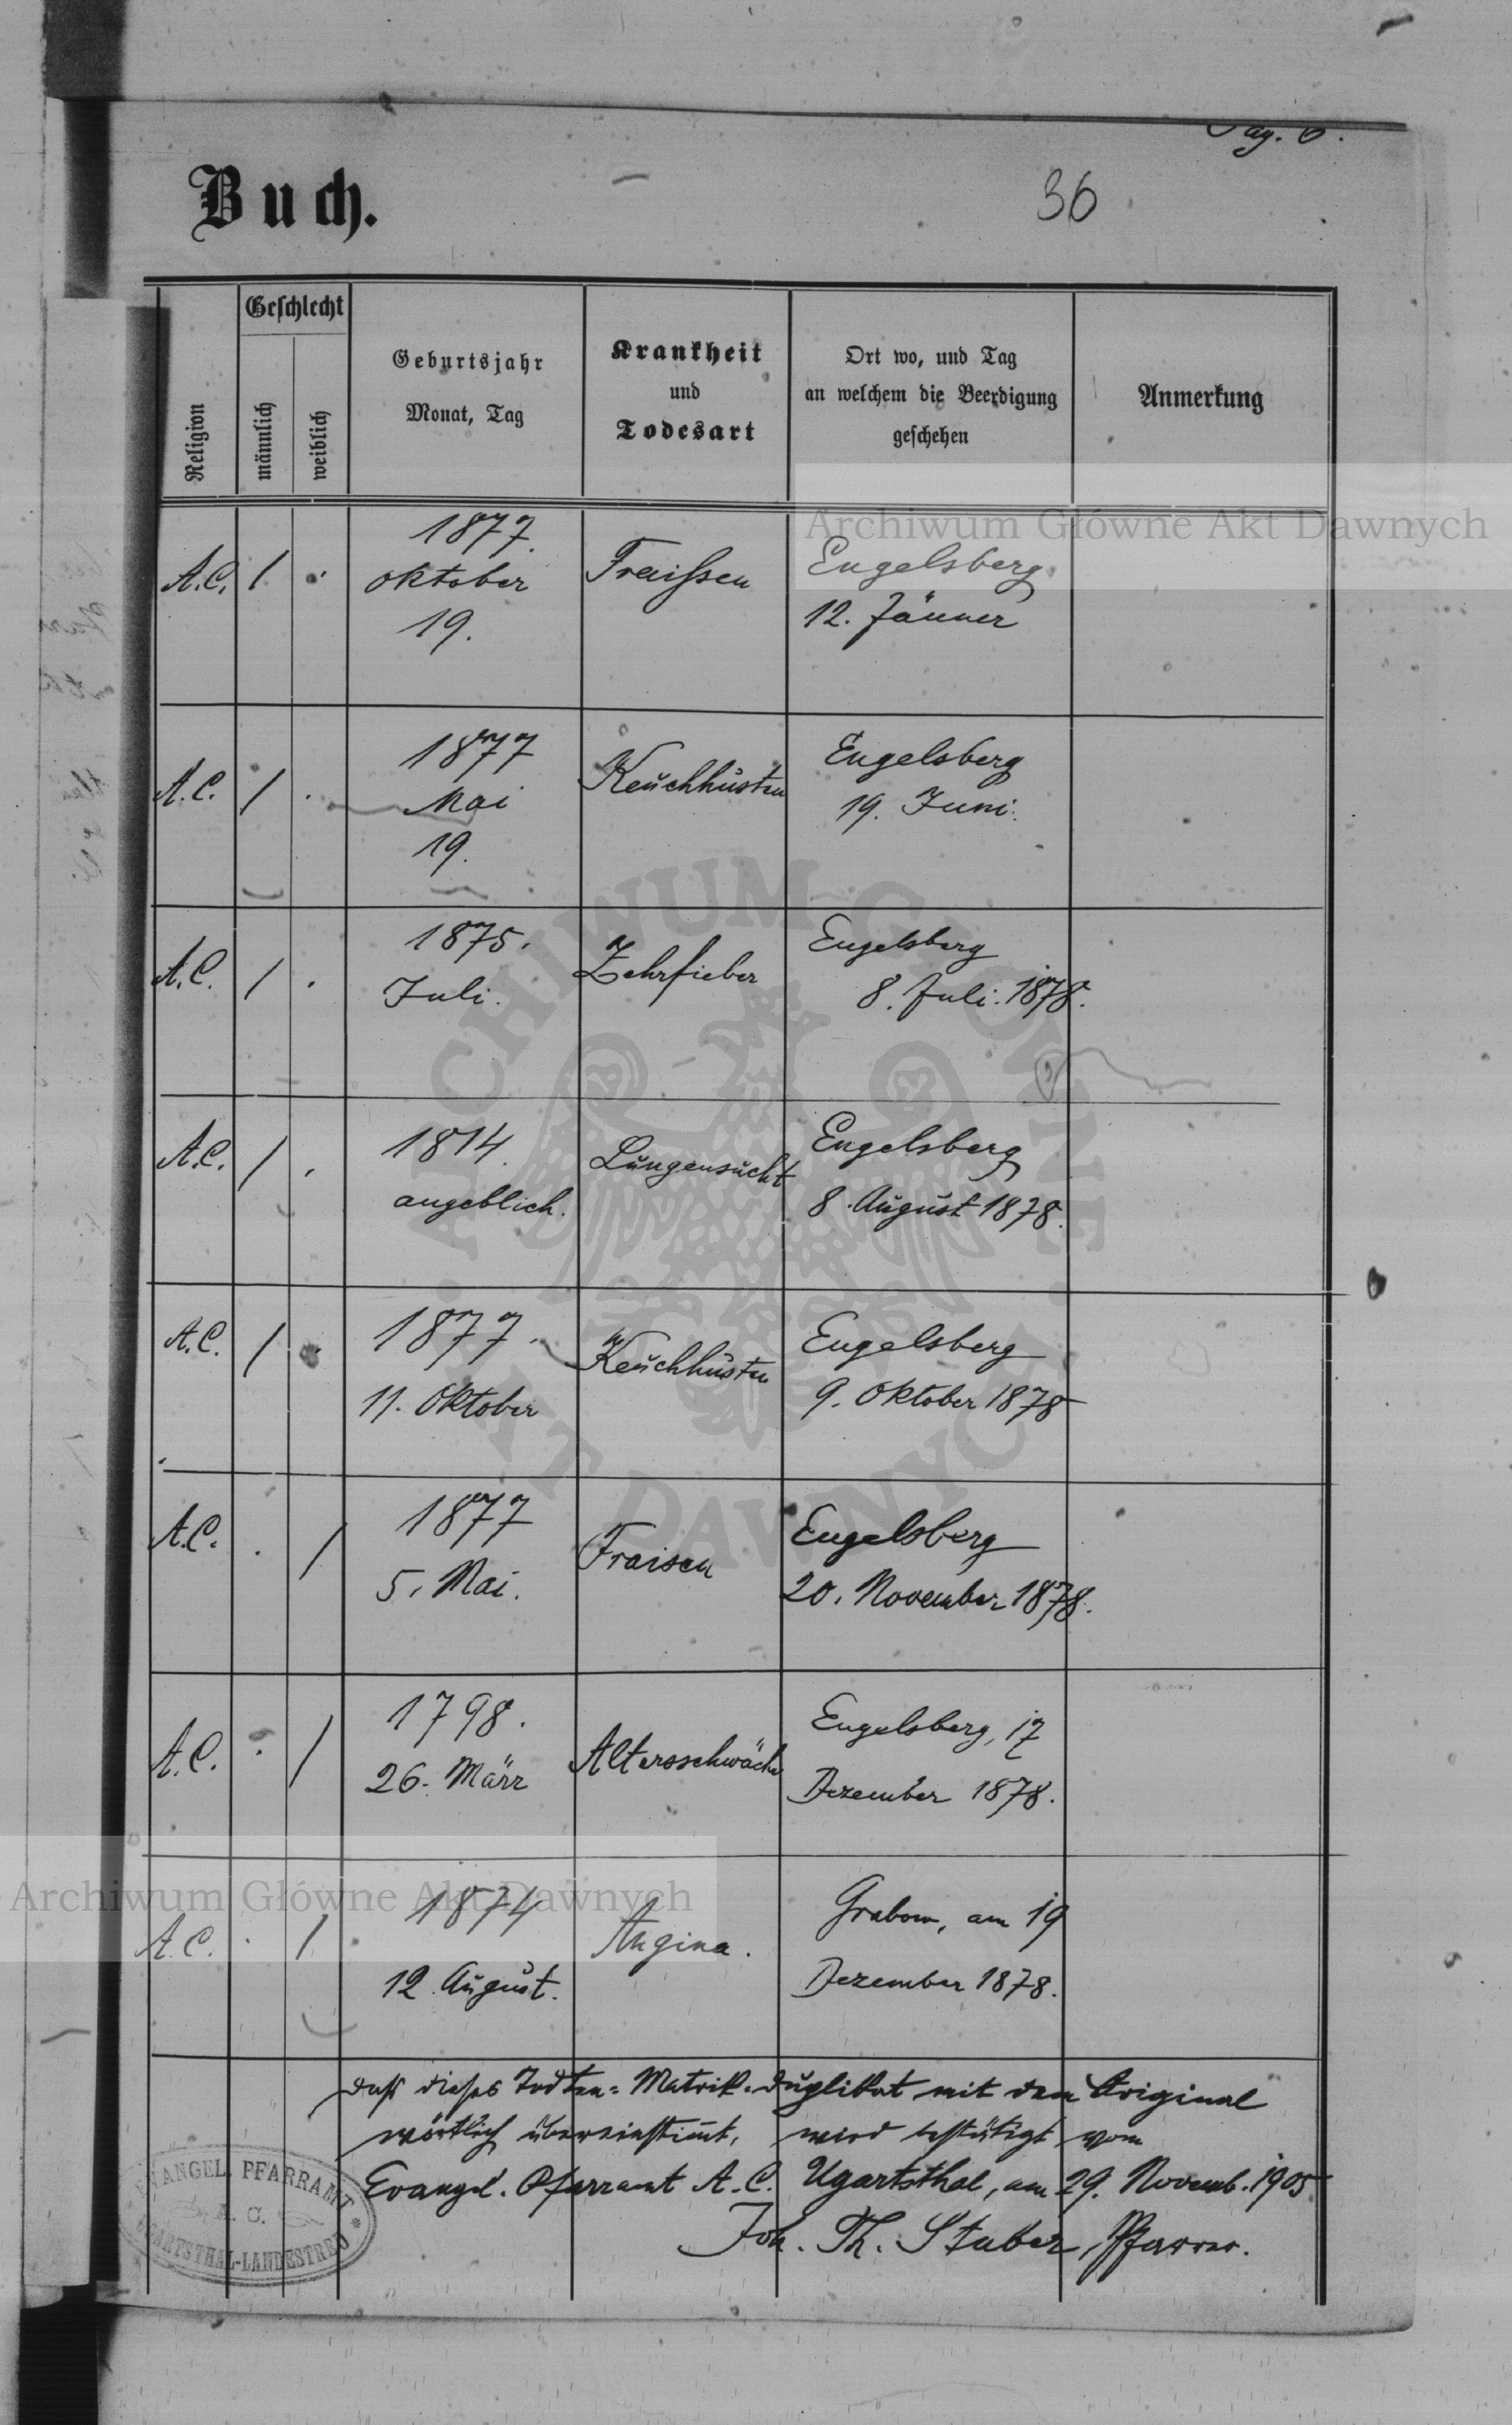 Pag. 6.
Buch.
36
Religion
Geschlecht
männlich
weiblich
Geburtsjahr
Monat, Tag
Krankheit
und
Todesart
Ort wo, und Tag
an welchem die Beerdigung
geschehen
Anmerkung
Archiwum Główne Akt Dawnych
A.C. / . 1877. Oktober 19. Fraißen Engelsberg 12. Jänner
A.C. / . 1877 Mai 19. Keuchhusten Engelsberg 19. Juni.
A.C. / . 1875. Juli. Zehrfieber Engelsberg 8. Juli. 1878.
A.C. / . 1814. angeblich. Lungensucht Engelsberg 8. August 1878.
A.C. / . 1877. 11. Oktober Keuchhusten Engelsberg 9. Oktober 1878
A.C. . / 1877 5. Mai. Fraisen Engelsberg 20. November 1878.
A.C. . / 1798. 26. März Altersschwäche Engelsberg, 17 Dezember 1878.
A.C. . / 1874 12. August. Angina. Grabow, am 19 Dezember 1878.
Archiwum Główne Akt Dawnych
ARCHIWUM GŁÓWNE AKT DAWNYCH
Daß dieses Todten-Matrik-Duplikat mit dem Original
wörtlich übereinstimt, wird bestätigt vom
Evangel. Pfarramt A.C. Ugartsthal, am 29. Novemb. 1905
Joh. Th. Stuber, Pfarrer.
EVANGEL. PFARRAMT
A. C.
UGARTSTHAL-LANDESTREU